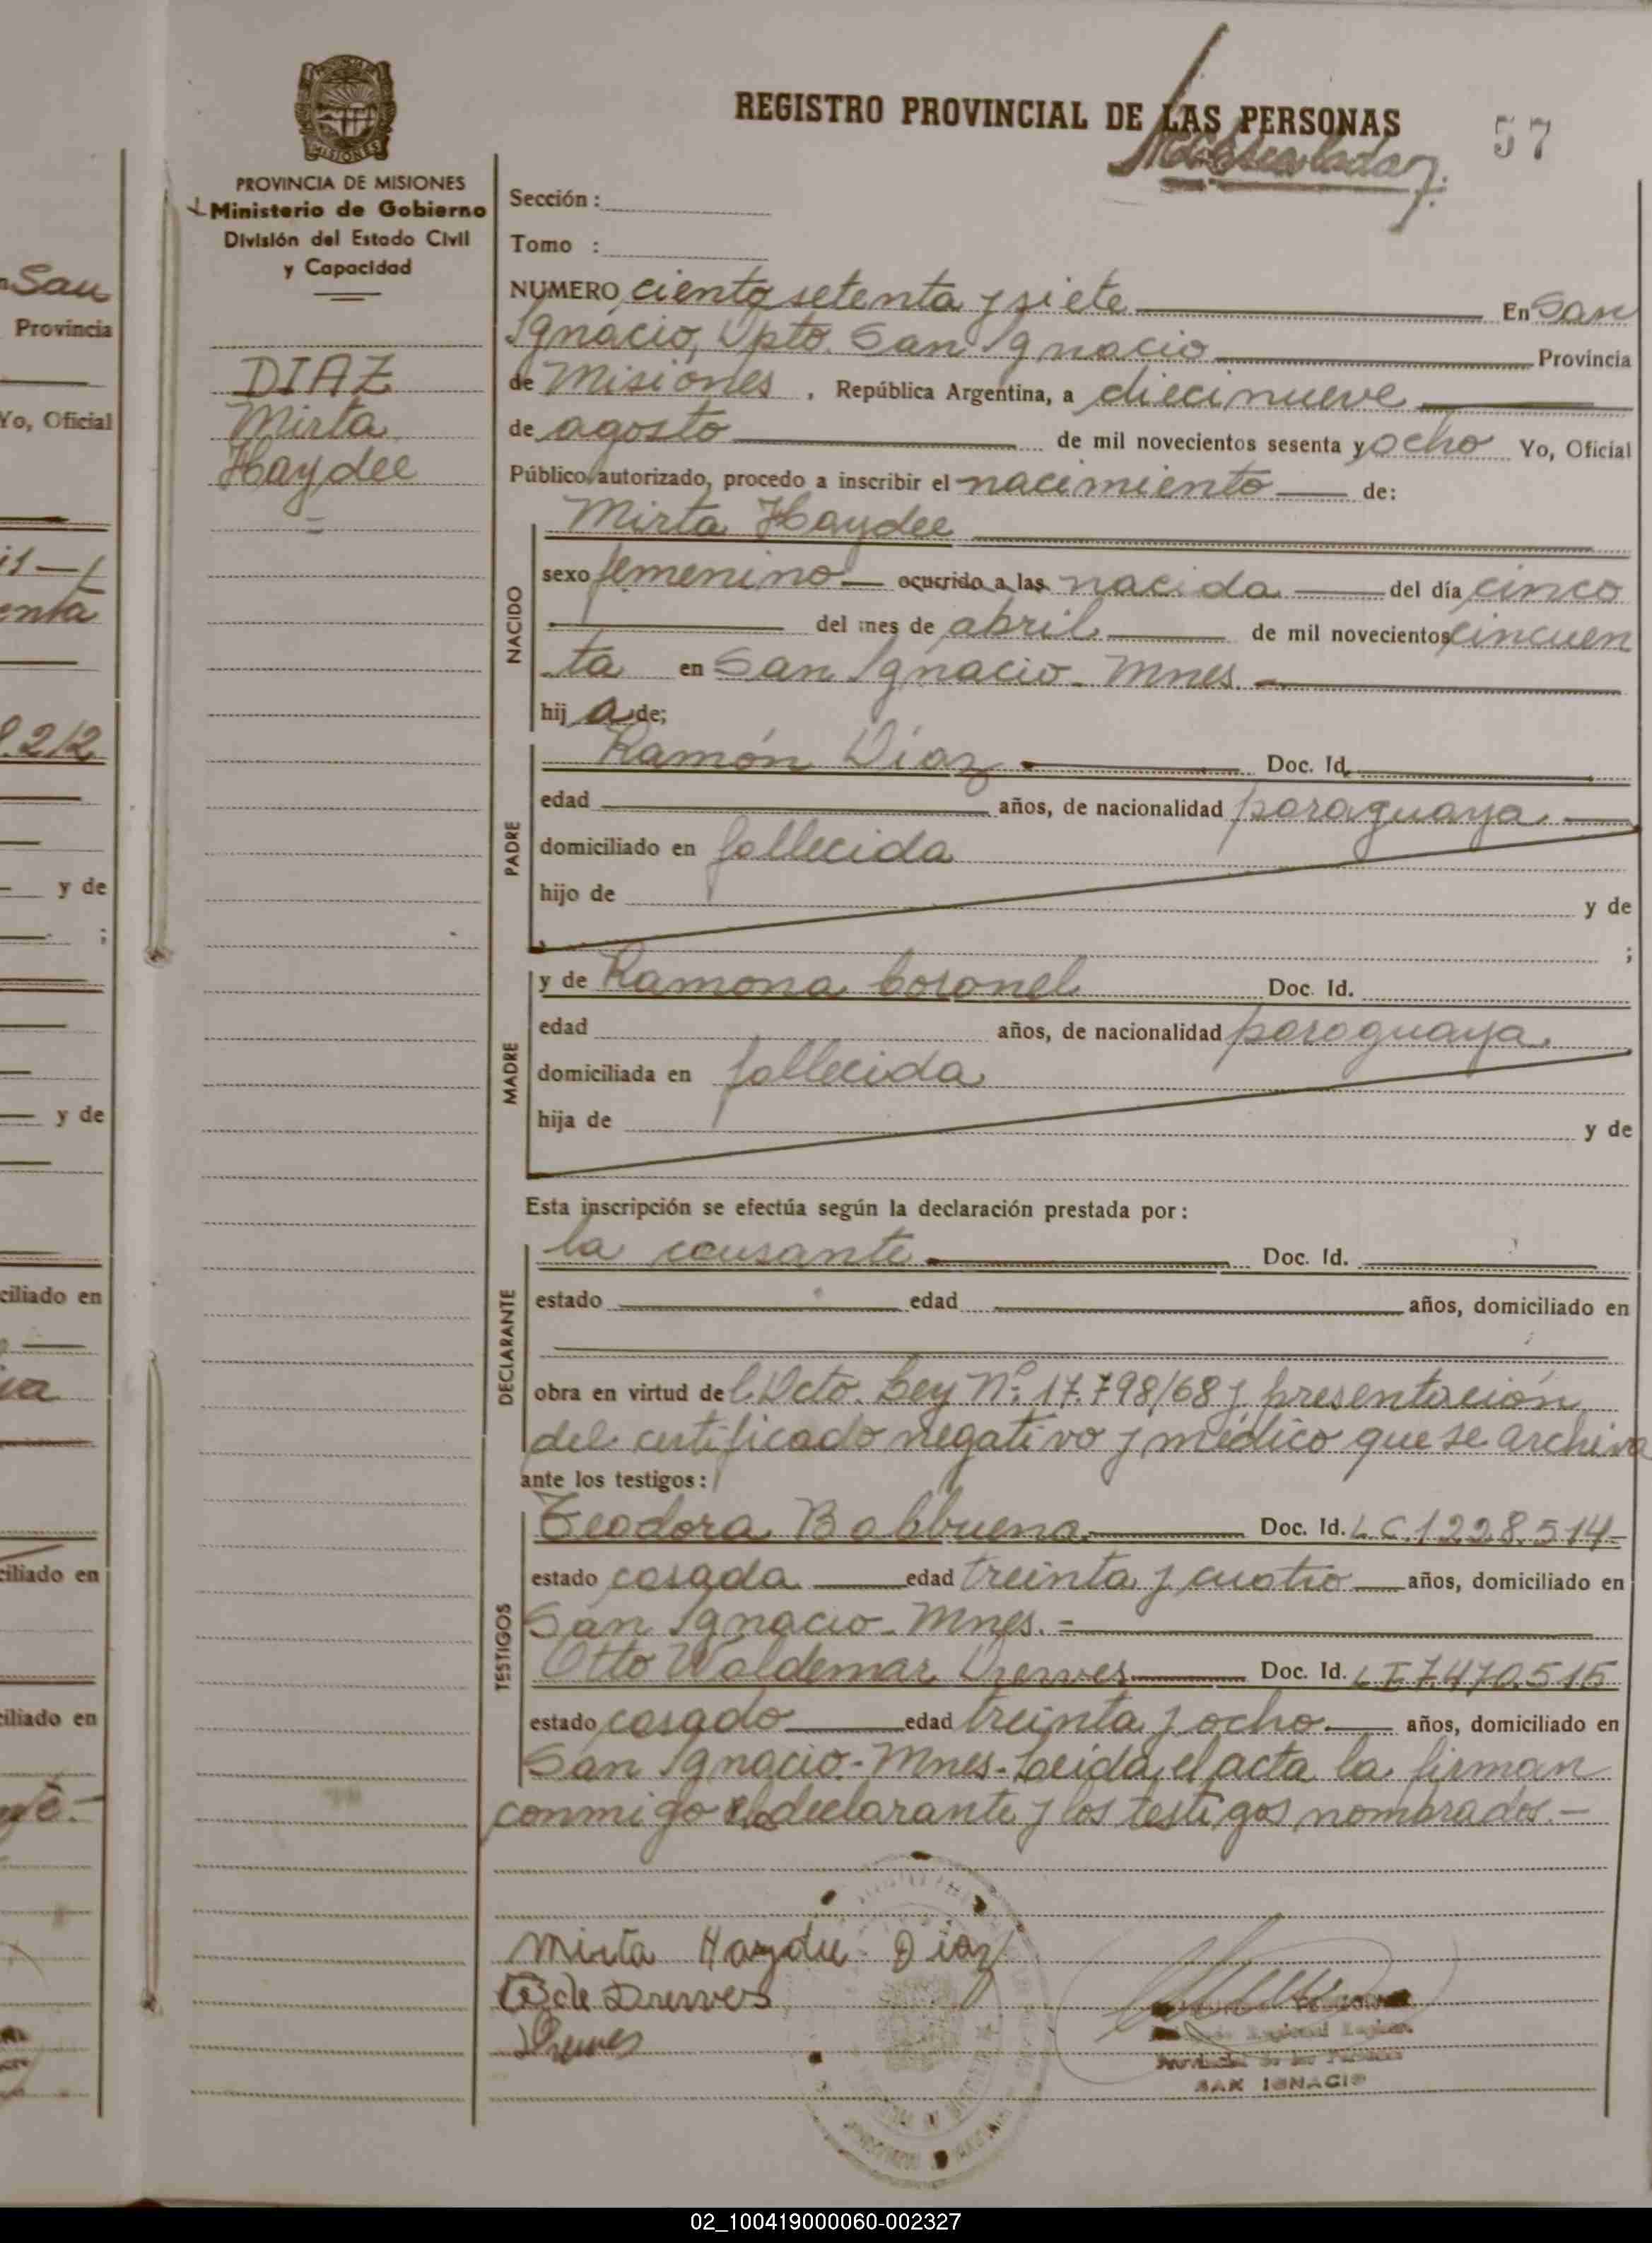 REGISTRO PROVINCIAL DE LAS PERSONAS
57
PROVINCIA DE MISIONES
Ministerio de Gobierno
División del Estado Civil
y Capacidad
DIAZ
Mirta
Haydee
Sección :
Tomo :
NUMERO ciento setenta y siete En San
Ignacio, Dpto. San Ignacio Provincia
de Misiones , República Argentina, a diecinueve
de agosto de mil novecientos sesenta y ocho Yo, Oficial
Público autorizado, procedo a inscribir el nacimiento de:
NACIDO
Mirta Haydee
sexo femenino ocurrido a las nacida del día cinco
del mes de abril de mil novecientos cincuen
ta en San Ignacio - Mnes.
hij a de;
PADRE
Ramón Díaz Doc. Id.
edad años, de nacionalidad paraguaya
domiciliado en fallecida
hijo de y de
;
MADRE
y de Ramona Coronel Doc. Id.
edad años, de nacionalidad paraguaya
domiciliada en fallecida
hija de y de
Esta inscripción se efectúa según la declaración prestada por :
DECLARANTE
la causante Doc. Id.
estado edad años, domiciliado en
obra en virtud del Dcto. Ley Nº: 17.798/68 y presentación
del certificado negativo y médico que se archiva
ante los testigos :
TESTIGOS
Teodora Balbuena Doc. Id. L.C.1.228.514
estado casada edad treinta y cuatro años, domiciliado en
San Ignacio - Mnes. -
Otto Waldemar Drewes Doc. Id. L E 7.470.515
estado casado edad treinta y ocho años, domiciliado en
San Ignacio.- Mnes - Leída el acta la firman
conmigo declarante y los testigos nombrados. -
Mirta Haydee Diaz
de Drewes
Drewes
SAN IGNACIO
San
Provincia
Yo, Oficial
enta
9.212
y de
;
y de
ciliado en
ciliado en
ciliado en
02_100419000060-002327